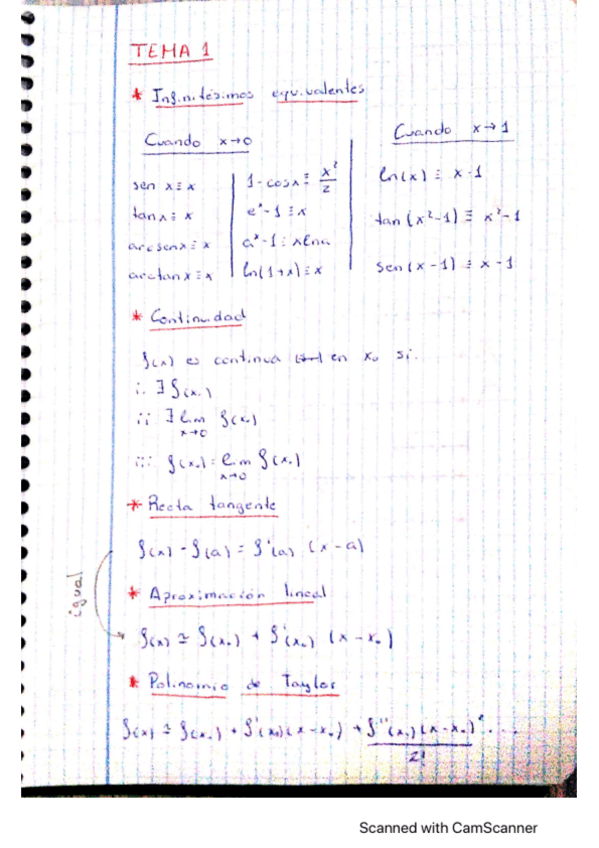 TEMA 1
* Infinitésimos equivalentes
Cuando x→0
sen x ≡ x
tan x ≡ x
arcsen x ≡ x
arctan x ≡ x
1 - cos x ≡ x²/2
eˣ - 1 ≡ x
aˣ - 1 ≡ x ln a
ln(1+x) ≡ x
Cuando x→1
ln(x) ≡ x - 1
tan(x²-1) ≡ x²-1
sen(x-1) ≡ x-1
* Continuidad
f(x) es continua en x₀ si:
∃ f(x₀)
∃ lim x→0 f(x₀)
f(x₀) = lim x→0 f(x₀)
* Recta tangente
f(x) - f(a) = f'(a) (x-a)
igual
* Aproximación lineal
f(x) ≃ f(x₀) + f'(x₀) (x-x₀)
* Polinomio de Taylor
f(x) ≃ f(x₀) + f'(x₀)(x-x₀) + f''(x₀)(x-x₀)²/2! ...
Scanned with CamScanner